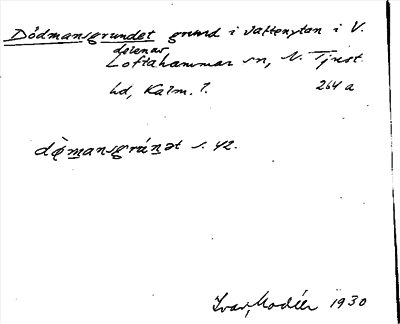 Dödmansgrundet grund i vattenytan i V.
delen av
Loftahammar sn, N. Tjust
hd, Kalm. l. 264 a
dø̀mansgrúnət s. 42.
Ivar Modéer 1930